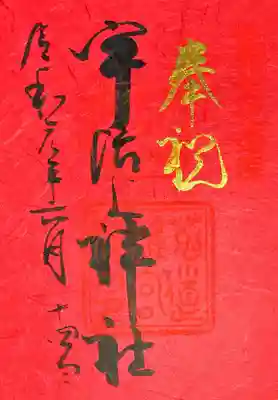 奉祝
宇治神社
令和元年六月
十四日